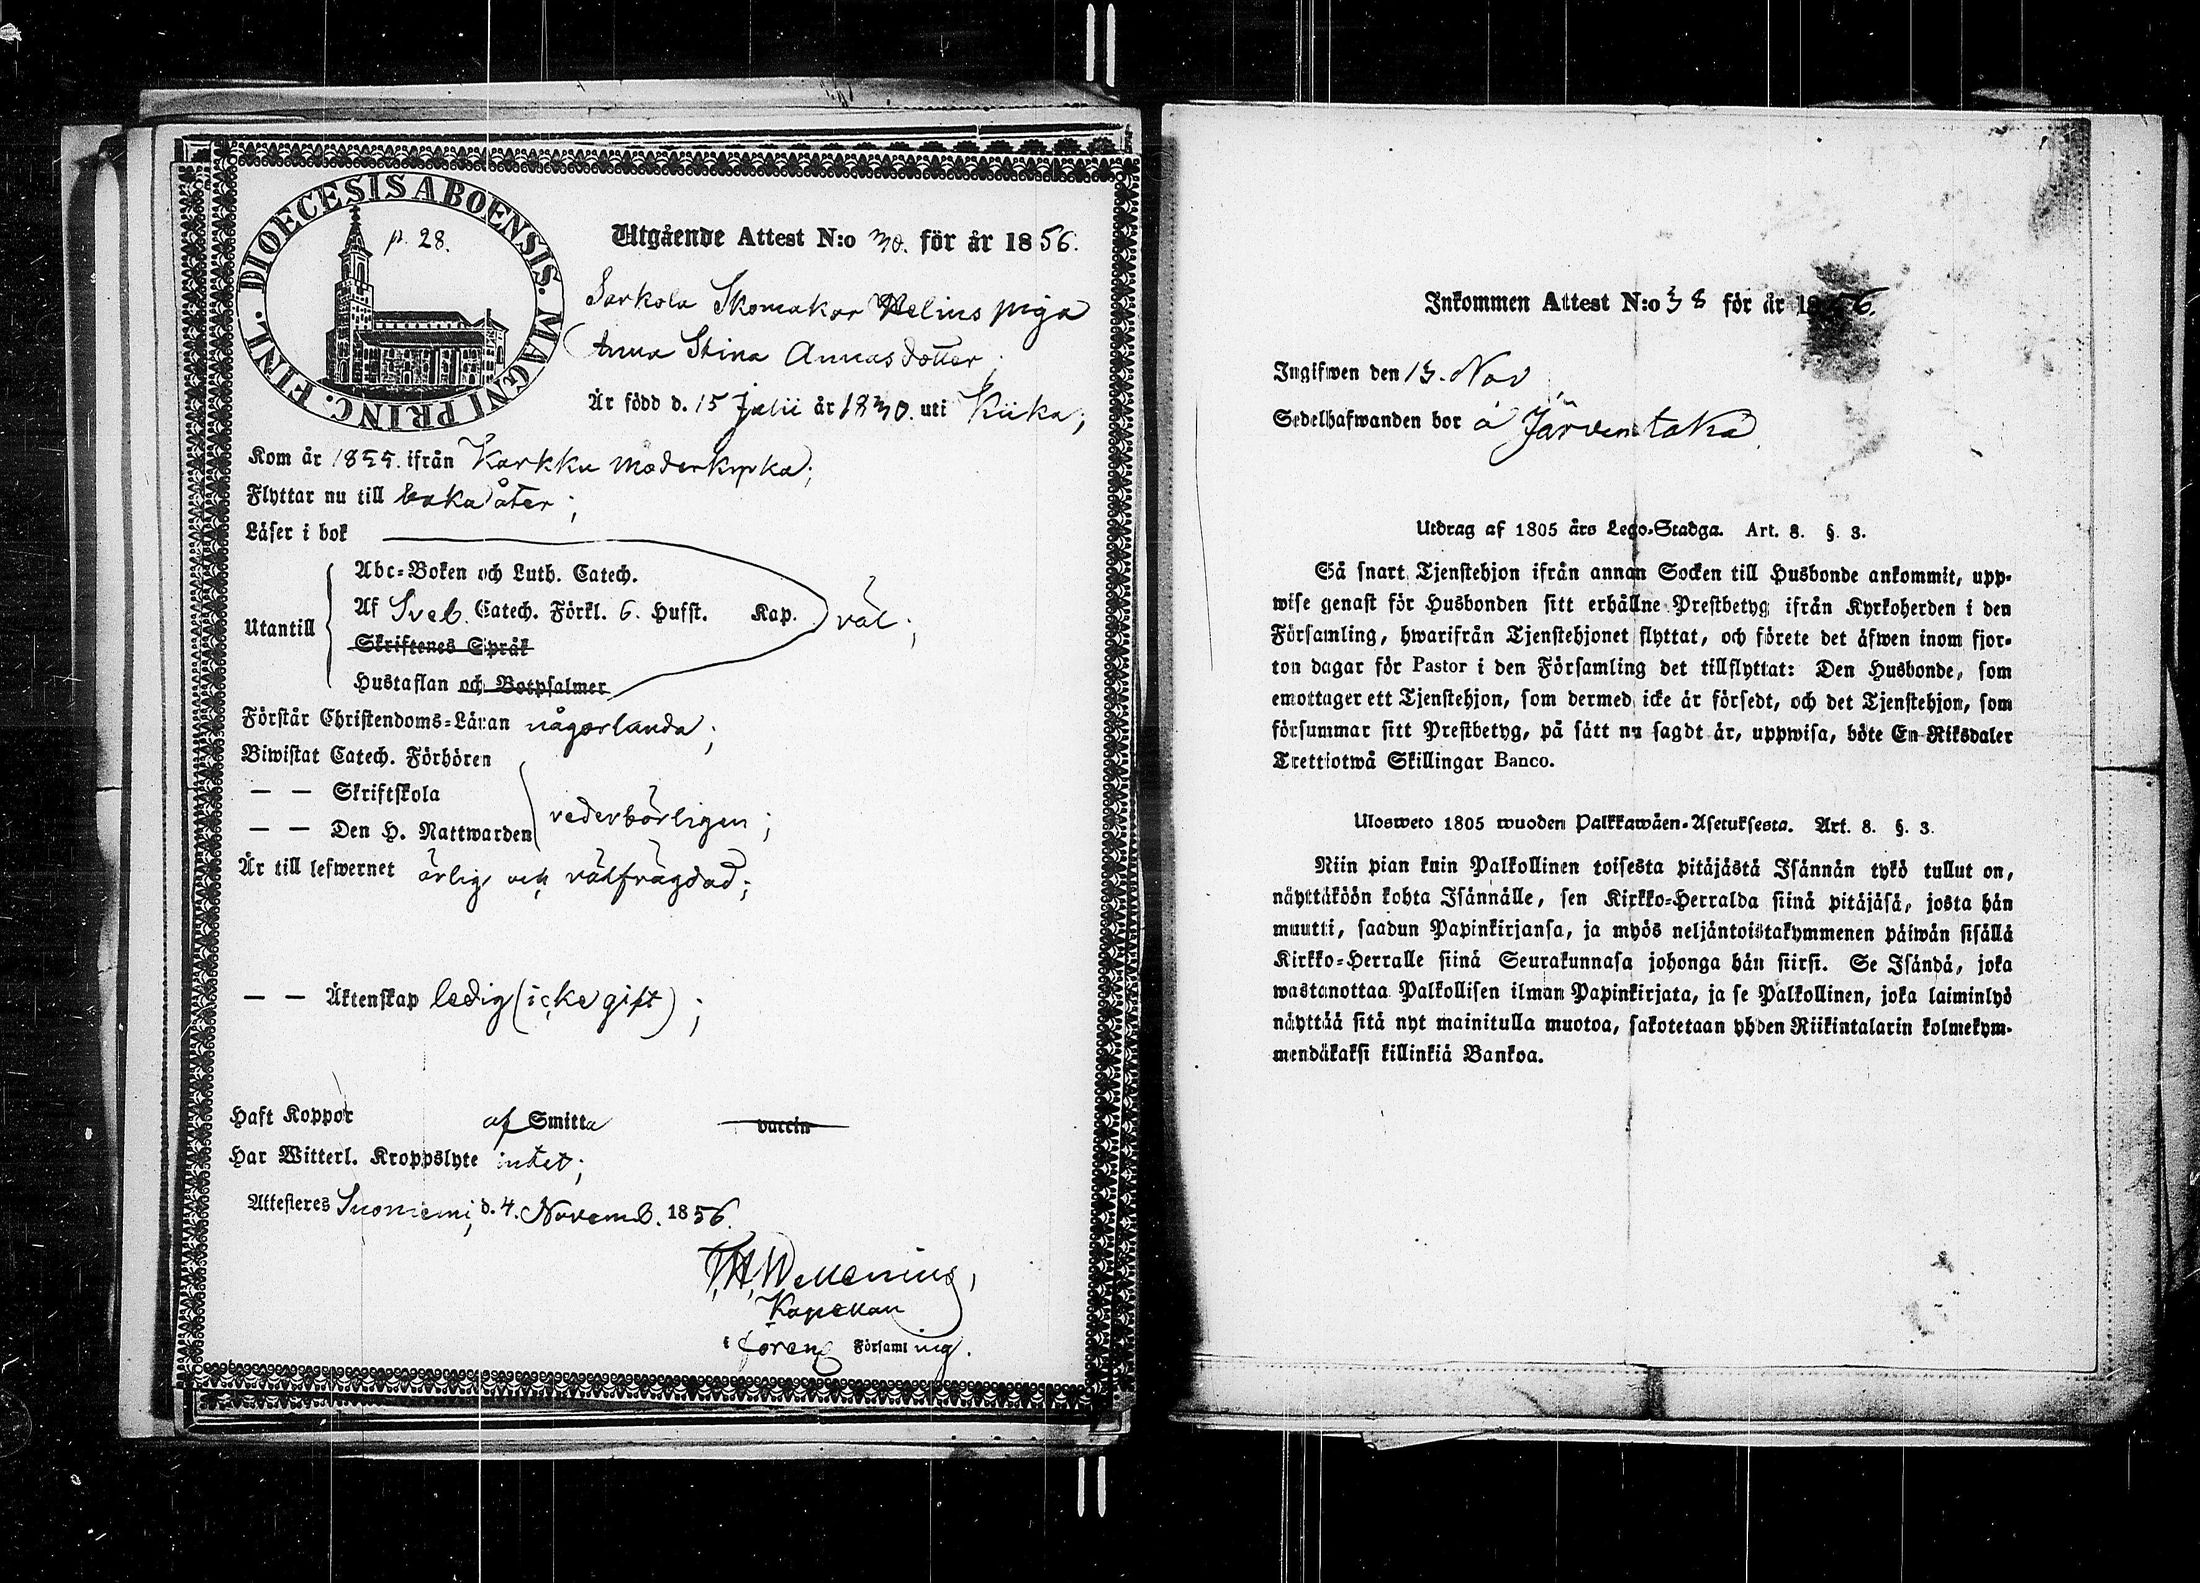 DIOECESIS ABOENSIS. MAGNI PRINC. FINL.
p. 28.
Utgående Attest N:o 30. för år 1856.
Sarkola Skomakar Helius piga
Anna Stina Annasdotter;
Är född d. 15 Julii år 1830. uti Kiika;
Kom år 1855. ifrån Karkku moderkyrka;
Flyttar nu till baka åter;
Läser i bok
Abc-Boken och Luth. Catech.
Af Sveb. Catech. Förkl. 6. Hufst. Kap.
Utantill
väl;
Skriftenes Språk
Hustaflan och Botpsalmer
Förstår Christendoms-Läran någorlunda;
Biwistat Catech. Förhören
— — Skriftskola
vederbörligen;
— — Den H. Nattwarden
Är till lefwernet ärlig och välfrägdad;
— — Äktenskap ledig (icke gift);
Haft Koppor af Smitta vaccin
Har Witterl. Kroppslyte intet;
Attesteres Suoniemi, d. 4. Novemb. 1856.
Kapellan
i Församling.
Inkommen Attest N:o 38 för år 1856.
Ingifwen den 13. Nov
Sedelhafwanden bor å Järventaka.
Utdrag af 1805 års Lego-Stadga. Art. 8. §. 3.
Så snart Tjenstehjon ifrån annan Socken till Husbonde ankommit, upp-
wise genast för Husbonden sitt erhållne Prestbetyg ifrån Kyrkoherden i den
Församling, hwarifrån Tjenstehjonet flyttat, och förete det äfwen inom fjor-
ton dagar för Pastor i den Församling det tillflyttat: Den Husbonde, som
emottager ett Tjenstehjon, som dermed icke är försedt, och det Tjenstehjon, som
försummar sitt Prestbetyg, på sätt nu sagdt är, uppwisa, böte En Riksdaler
Trettiotwå Skillingar Banco.
Ulosweto 1805 wuoden Palkkawäen-Asetuksesta. Art. 8. §. 3.
Niin pian kuin Palkollinen toisesta pitäjästä Isännän tykö tullut on,
näyttäköön kohta Isännälle, sen Kirkko-Herralda siinä pitäjäsä, josta hän
muutti, saadun Papinkirjansa, ja myös neljäntoistakymmenen päiwän sisällä
Kirkko-Herralle siinä Seurakunnasa johonga hän siirsi. Se Isändä, joka
wastanottaa Palkollisen ilman Papinkirjata, ja se Palkollinen, joka laiminlyö
näyttää sitä nyt mainitulla muotoa, sakotetaan yhden Riikintalarin kolmekym-
mendäkaksi killinkiä Bankoa.